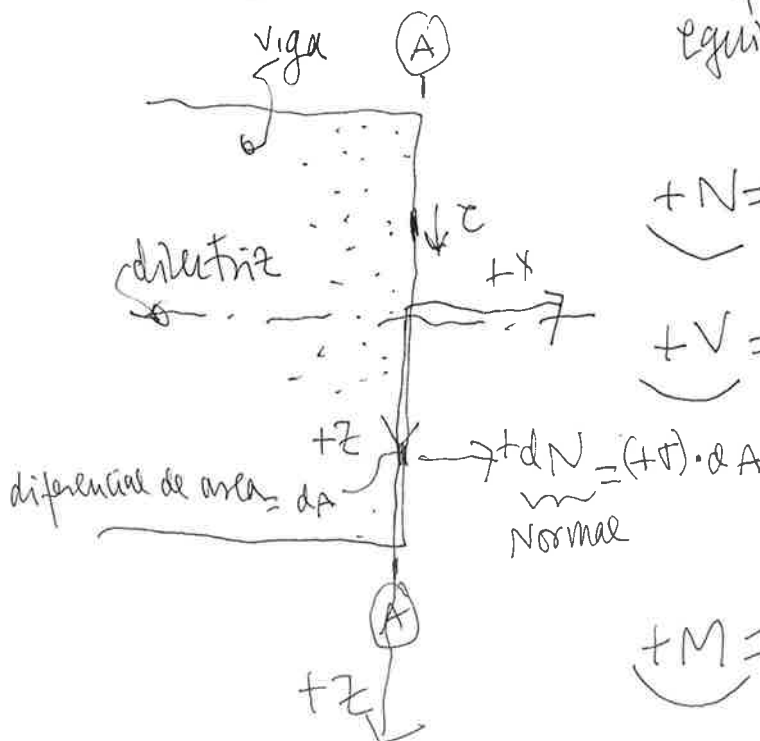 viga
A
equi
+N=
τ
directriz
+X
+V=
+Z
+dN=(+σ)·dA
diferencial de area= dA
Normal
A
+M=
+Z